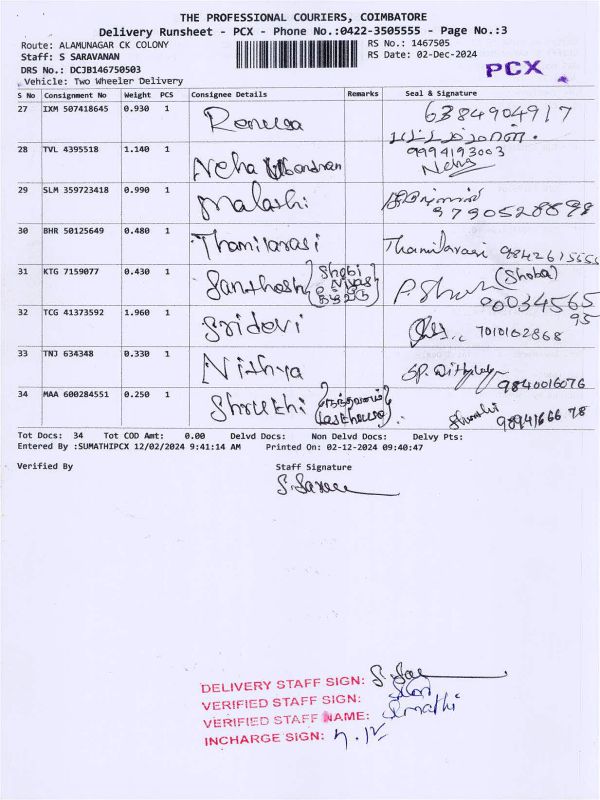 THE PROFESSIONAL COURIERS, COIMBATORE
Delivery Runsheet - PCX - Phone No.:0422-3505555 - Page No.:3
Route: ALAMUNAGAR CK COLONY
RS No.: 1467505
Staff: S SARAVANAN
RS Date: 02-Dec-2024
DRS No.: DCJB146750503
PCX
Vehicle: Two Wheeler Delivery
S No Consignment No Weight PCS Consignee Details Remarks Seal & Signature
27 IXM 507418645 0.930 1 Renuga 6384904917
28 TVL 4395518 1.140 1 Neha 9994193003
Neha
29 SLM 359723418 0.990 1 Malathi 9790528898
30 BHR 50125649 0.480 1 Thamilarasi Thamilarasi 9842615555
31 KTG 7159077 0.430 1 Santhosh (Shoba)
9003456595
32 TCG 41373592 1.960 1 Sridevi 7010102868
33 TNJ 634348 0.330 1 Nithya 9840016076
34 MAA 600284551 0.250 1 Shrukhi
Tot Docs: 34 Tot COD Amt: 0.00 Delvd Docs: Non Delvd Docs: Delvy Pts:
Entered By :SUMATHIPCX 12/02/2024 9:41:14 AM Printed On: 02-12-2024 09:40:47
Verified By Staff Signature
DELIVERY STAFF SIGN:
VERIFIED STAFF SIGN:
VERIFIED STAFF NAME:
INCHARGE SIGN: